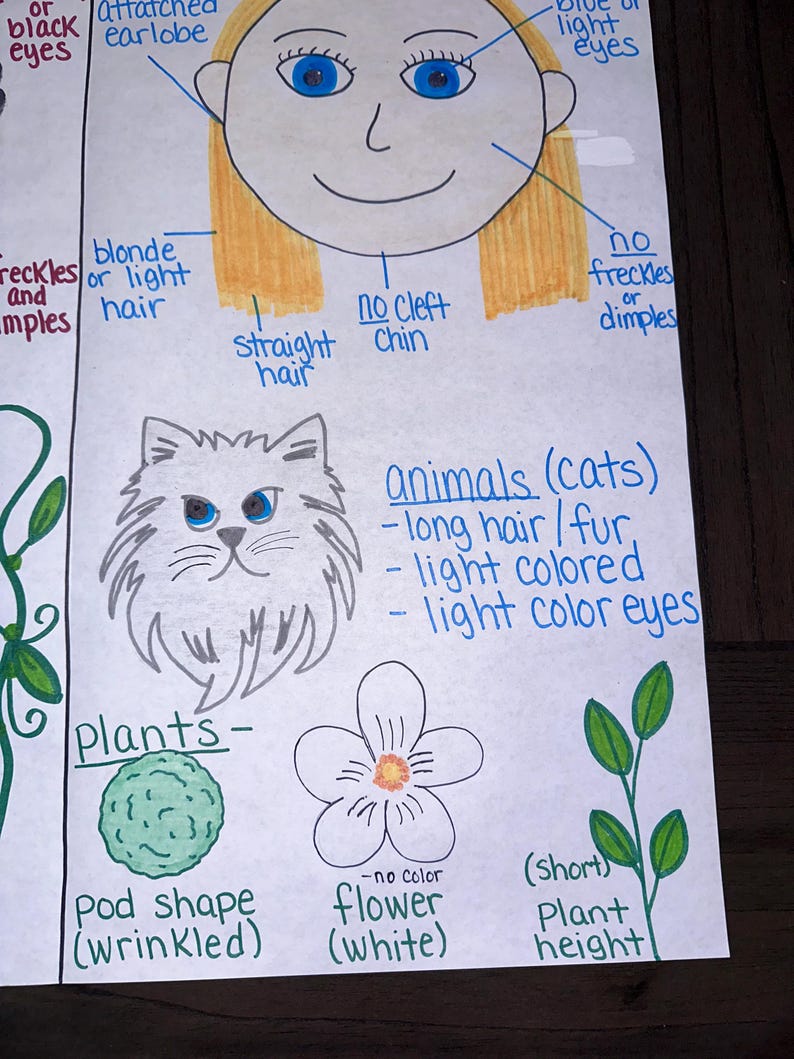 or
black
eyes
attatched
earlobe
blue or
light
eyes
blonde
or light
hair
straight
hair
no cleft
chin
no
freckles
or
dimples
reckles
and
mples
animals (cats)
- long hair/fur
- light colored
- light color eyes
plants -
pod shape
(wrinkled)
- no color
flower
(white)
(short)
Plant
height